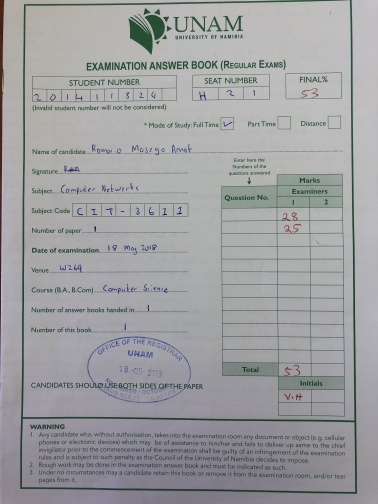 UNAM
UNIVERSITY OF NAMIBIA
EXAMINATION ANSWER BOOK (REGULAR EXAMS)
STUDENT NUMBER
SEAT NUMBER H 2 1
FINAL% 53
(Invalid student number will not be considered)
* Mode of Study: Full Time ✓ Part Time Distance
Name of candidate
Signature
Subject Computer Networks
Subject Code CIT-3611
Number of paper 1
Date of examination 18 May 2018
Venue W269
Course (B.A., B.Com) Computer Science
Number of answer books handed in 1
Number of this book 1
Enter here the
Numbers of the
questions answered
Marks
Examiners
Question No. 1 2
28
25
Total 53
Initials
V.H
OFFICE OF THE REGISTRAR
UNAM
CANDIDATES SHOULD USE BOTH SIDES OF THE PAPER
WARNING
1. Any candidate who, without authorisation, takes into the examination room any document or object (e.g. cellular
phones or electronic devices) which may be of assistance to him/her and fails to deliver up same to the chief
invigilator prior to the commencement of the examination shall be guilty of an infringement of the examination
rules and is subject to such penalty as the Council of the University of Namibia decides to impose.
2. Rough work may be done in the examination answer book and must be indicated as such.
3. Under no circumstances may a candidate retain this book or remove it from the examination room, and/or tear
pages from it.